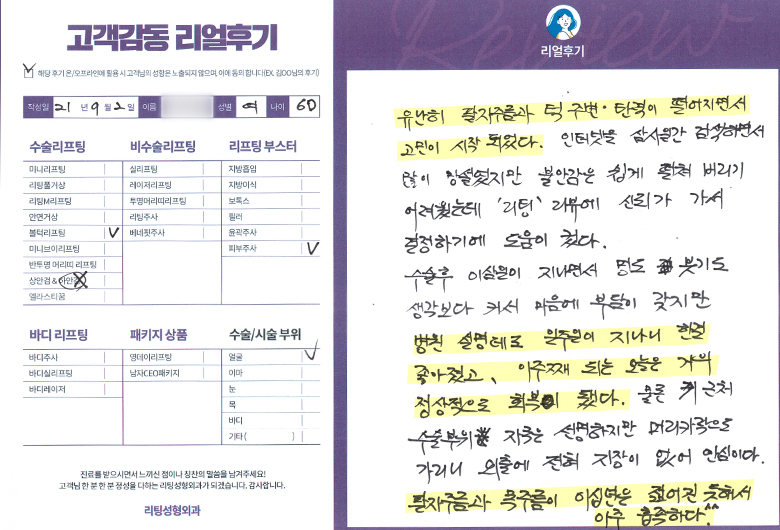 고객감동 리얼후기
해당 후기 온/오프라인에 활용 시 고객님의 성함은 노출되지 않으며, 이에 동의 합니다(EX. 김OO님의 후기)
작성일 21 년 9 월 2 일 이름 성별 여 나이 60
수술리프팅
미니리프팅
리팅풀거상
리팅M리프팅
안면거상
볼턱리프팅 V
미니브이리프팅
반투명 머리띠 리프팅
상안검 & 하안검
엘라스티꿈
비수술리프팅
실리프팅
레이저리프팅
투명머리띠리프팅
리팅주사
베네핏주사
리프팅 부스터
지방흡입
지방이식
보톡스
필러
윤곽주사
피부주사 V
바디 리프팅
바디주사
바디실리프팅
바디레이저
패키지 상품
영데이리프팅
남자CEO패키지
수술/시술 부위
얼굴 V
이마
눈
목
바디
기타 ( )
진료를 받으시면서 느끼신 점이나 칭찬의 말씀을 남겨주세요!
고객님 한 분 한 분 정성을 다하는 리팅성형외과가 되겠습니다. 감사합니다.
리팅성형외과
Review
리얼후기
유난히 팔자주름과 턱 주변 탄력이 떨어지면서
고민이 시작 되었다. 인터넷을 삼사일간 검색하면서
많이 망설였지만 불안감은 쉽게 떨쳐 버리기
어려웠는데 '리팅' 리뷰에 신뢰가 가서
결정하기에 도움이 컸다.
수술후 이삼일이 지나면서 멍도 붓기도
생각보다 커서 마음에 부담이 갔지만
병원 설명대로 일주일이 지나니 한결
좋아졌고, 이주째 되는 오늘은 거의
정상적으로 회복이 됐다. 물론 귀 근처
수술부위 자국은 선명하지만 머리카락으로
가리니 외출에 전혀 지장이 없어 안심이다.
팔자주름과 목주름이 이십년은 젊어진 듯해서
아주 흡족하다^^